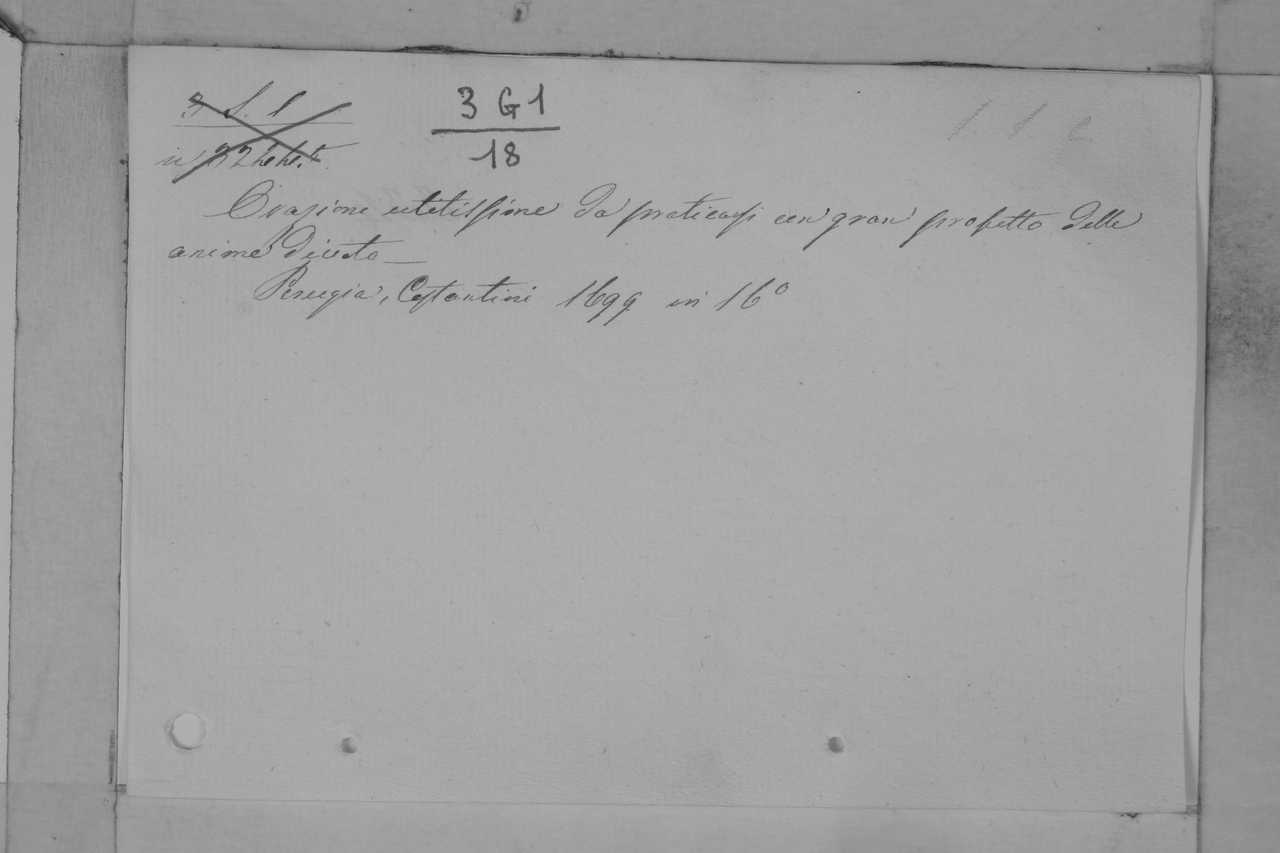 3 G 1
18
Orazione utilissime da praticarsi con gran profitto delle
anime divote —
Perugia, Costantini 1699 in 16°